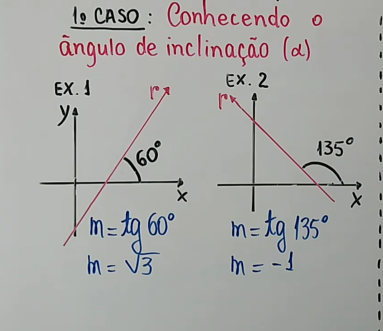 1º CASO: Conhecendo o
ângulo de inclinação (α)
EX. 1
y
r
60°
x
m = tg 60°
m = √3
EX. 2
r
135°
x
m = tg 135°
m = -1